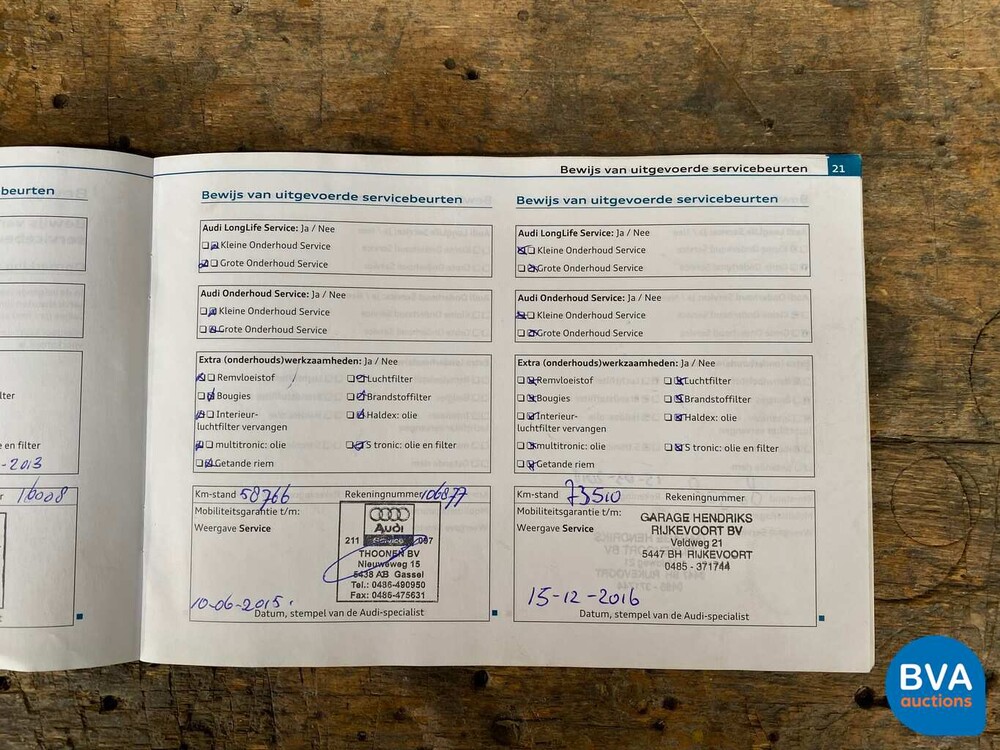 beurten
lter
en filter
-2013
r 16008
Bewijs van uitgevoerde servicebeurten 21
Bewijs van uitgevoerde servicebeurten
Audi LongLife Service: Ja / Nee
Kleine Onderhoud Service
Grote Onderhoud Service
Audi Onderhoud Service: Ja / Nee
Kleine Onderhoud Service
Grote Onderhoud Service
Extra (onderhouds)werkzaamheden: Ja / Nee
Remvloeistof Luchtfilter
Bougies Brandstoffilter
Interieur- Haldex: olie
luchtfilter vervangen
multitronic: olie S tronic: olie en filter
Getande riem
Km-stand 58766 Rekeningnummer 106877
Mobiliteitsgarantie t/m:
Weergave Service
Audi
211 Service 097
THOONEN BV
Nieuweweg 15
5438 AB Gassel
Tel.: 0486-490950
Fax: 0486-475631
10-06-2015.
Datum, stempel van de Audi-specialist
Bewijs van uitgevoerde servicebeurten
Audi LongLife Service: Ja / Nee
Kleine Onderhoud Service
Grote Onderhoud Service
Audi Onderhoud Service: Ja / Nee
Kleine Onderhoud Service
Grote Onderhoud Service
Extra (onderhouds)werkzaamheden: Ja / Nee
Remvloeistof Luchtfilter
Bougies Brandstoffilter
Interieur- Haldex: olie
luchtfilter vervangen
multitronic: olie S tronic: olie en filter
Getande riem
Km-stand 73510 Rekeningnummer
Mobiliteitsgarantie t/m:
Weergave Service
GARAGE HENDRIKS
RIJKEVOORT BV
Veldweg 21
5447 BH RIJKEVOORT
0485 - 371744
15-12-2016
Datum, stempel van de Audi-specialist
BVA
auctions